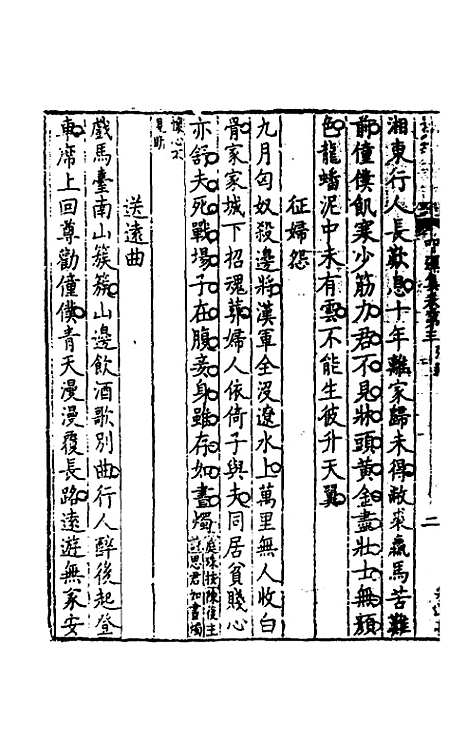 湘東行人長歎息十年離家歸未得敝裘羸馬苦難
前僮僕飢寒少筋力君不見牀頭黃金盡壯士無顏
色龍蟠泥中未有雲不能生彼升天翼
征婦怨
九月匈奴殺邊將漢軍全沒遼水上萬里無人收白
骨家家城下招魂葬婦人依倚子與夫同居貧賤心
亦舒夫死戰場子在腹妾身雖存如晝燭
思君如晝燭
懷心不
見昕
送遠曲
戲馬臺南山簇簇山邊飲酒歌別曲行人醉後起登
車席上回尊勸僮僕青天漫漫覆長路遠遊無家安